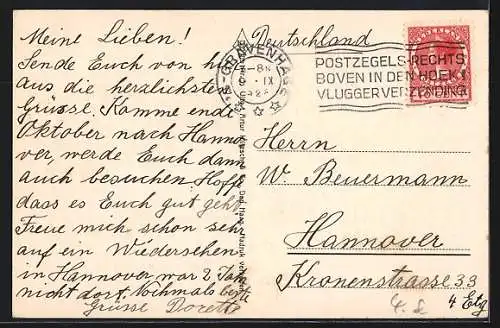 Meine Lieben!
Sende Euch von hier
aus die herzlichsten
Grüsse. Komme ende
Oktober nach Hanno-
ver, werde Euch dann
auch besuchen. Hoffe
dass es Euch gut geht.
Freue mich schon sehr
auf ein Wiedersehen
in Hannover war 2 Jahr
nicht dort. Nochmals beste
Grüsse Dorette
Deutschland
'S-GRAVENHAGE
8-
IX
POSTZEGELS-RECHTS
BOVEN IN DEN HOEK!
VLUGGER VERZENDING
Herrn
W. Beuermann
Hannover
Kronenstrasse 33
4 Etg